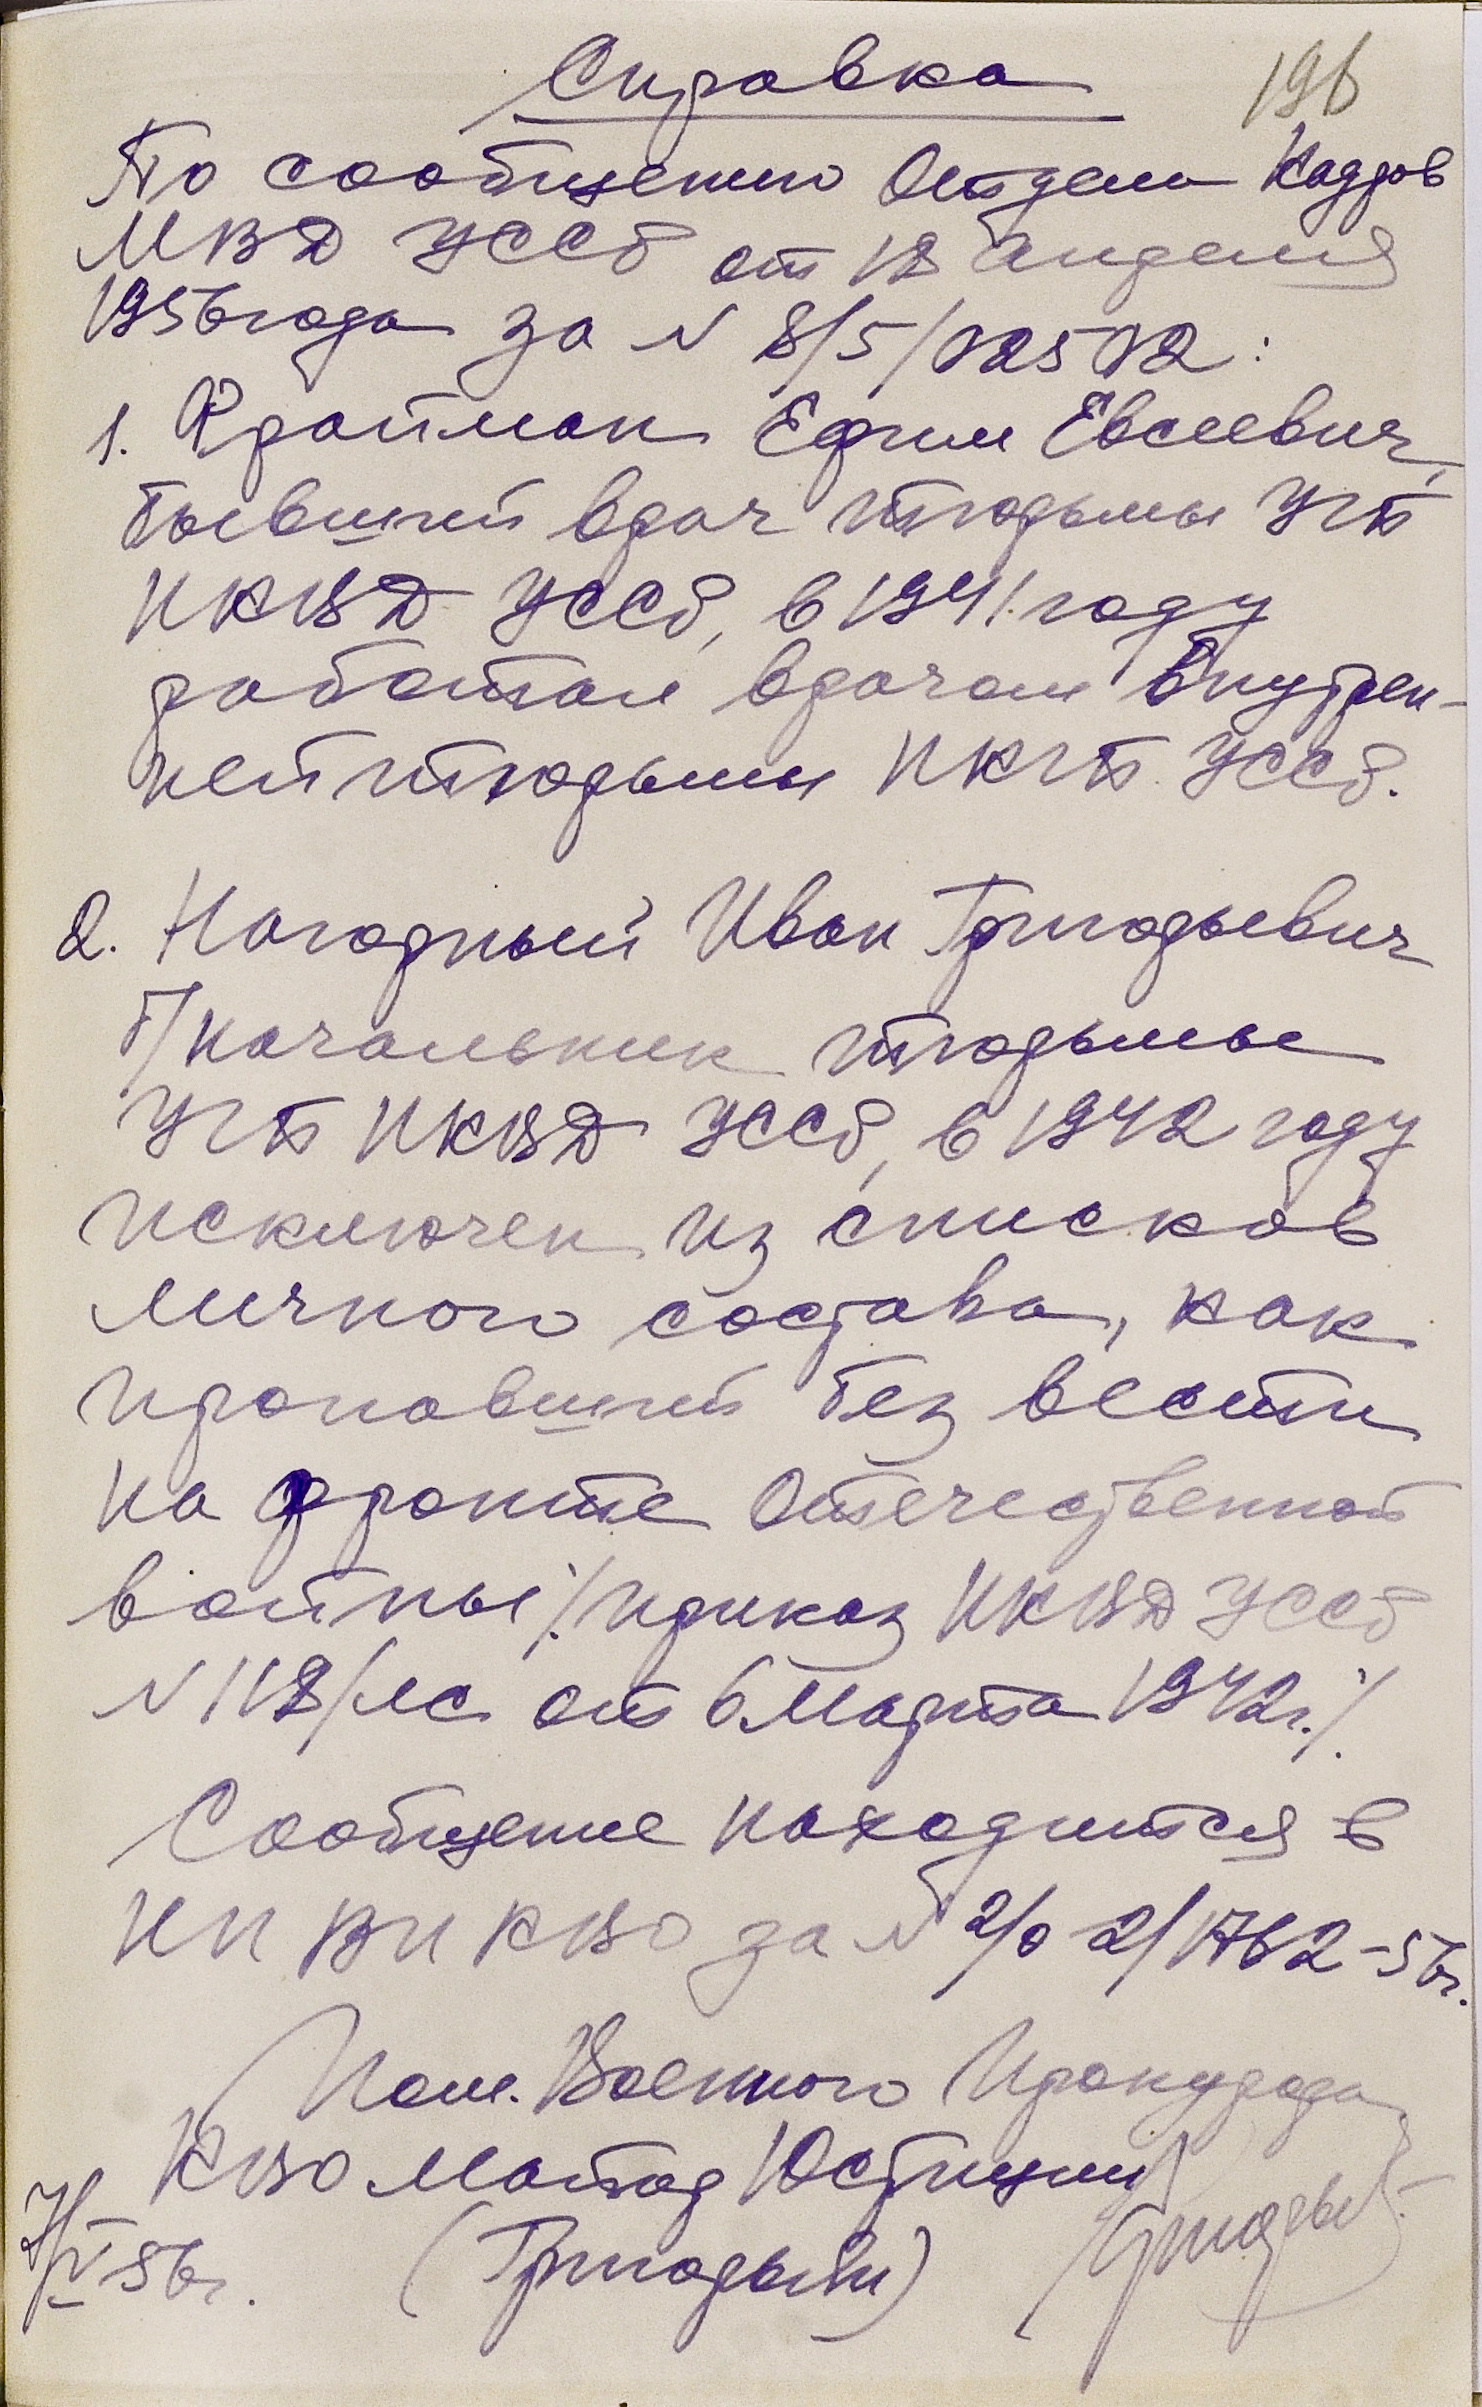 Справка
196
По сообщению Отдела Кадров
МВД УССР от 18 апреля
1956 года за N 8/5/02502:
1. Фрайман Ефим Евсеевич,
бывший врач тюрьмы УГБ
НКВД УССР, в 1941 году
работал врачом Внутрен-
ней тюрьмы НКГБ УССР.
2. Нагорный Иван Григорьевич
б/начальник тюрьмы
УГБ НКВД УССР, в 1942 году
исключен из списков
личного состава, как
пропавший без вести
на фронте Отечественной
войны /приказ НКВД УССР
N 118/лс от 6 Марта 1942г./
Сообщение находится в
НП ВП КВО за N 2/0-2/1762-56г.
Пом. Военного Прокурора
КВО Майор Юстиции
7/V 56г. (Григорьев)